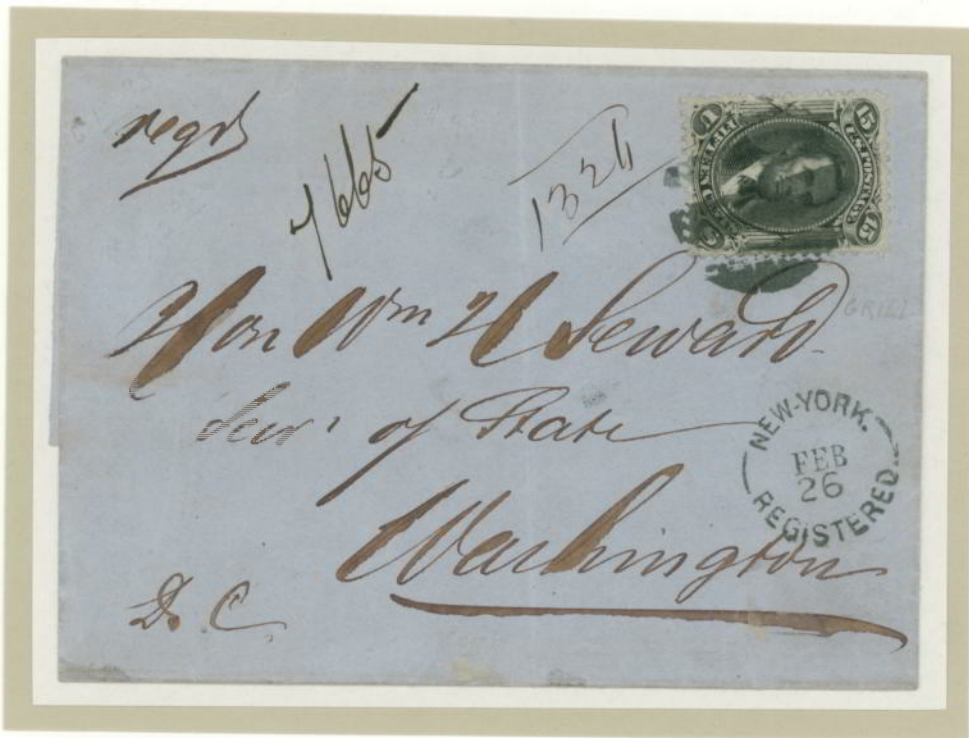 regd
7665
1324
15 U.S. POSTAGE 15
FIFTEEN CENTS
Hon Wm H Seward
Secr. of State
NEW-YORK.
FEB
26
REGISTERED
Washington
D. C.